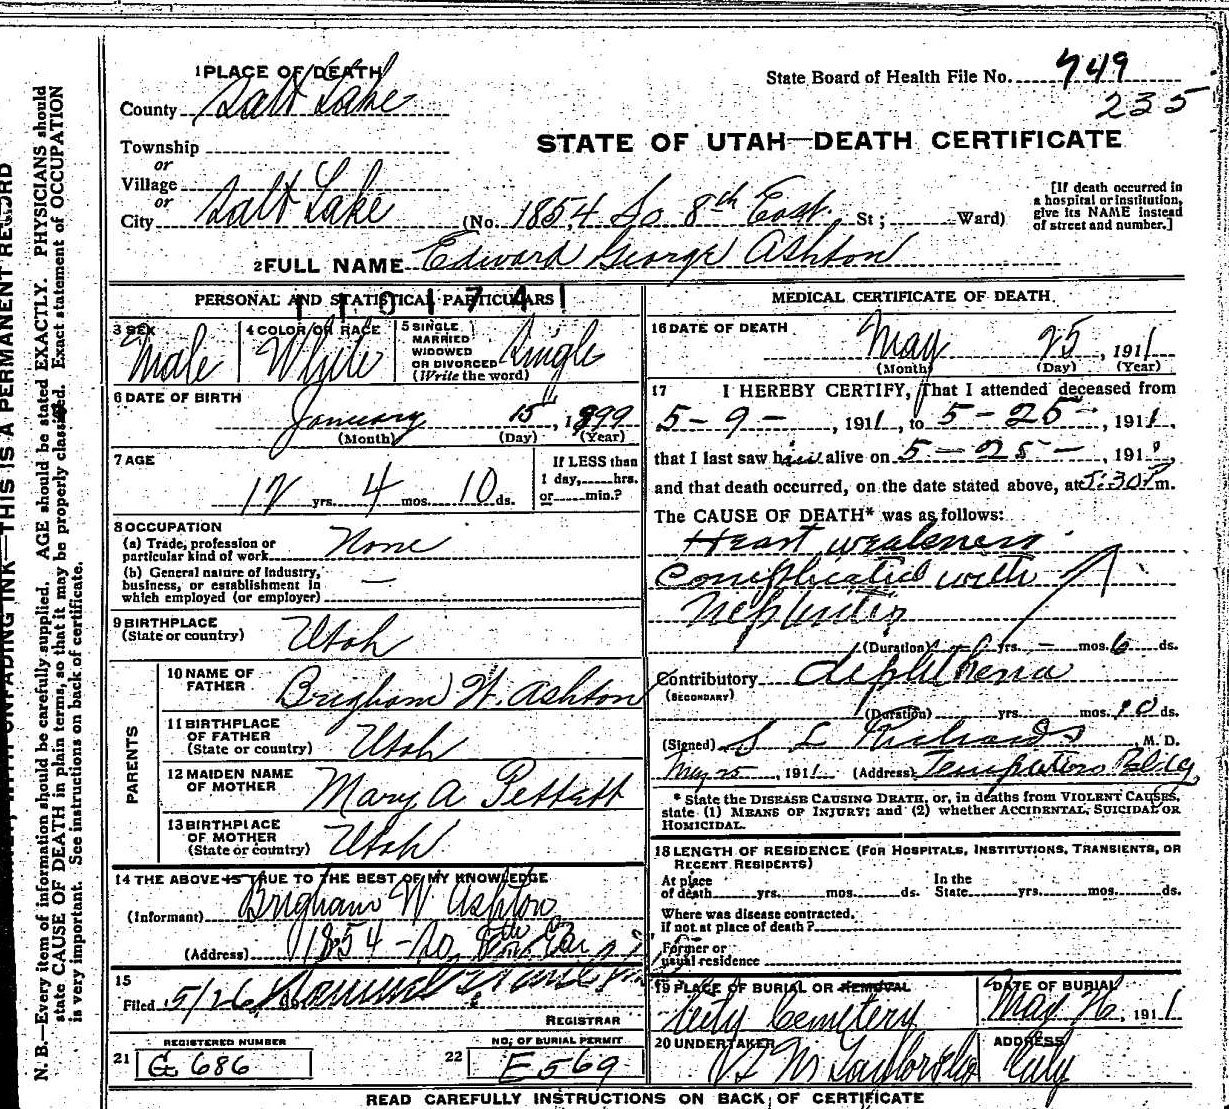 1 PLACE OF DEATH
County Salt Lake
Township
or
Village
or
City Salt Lake (No. 1854 So 8th East St; Ward)
State Board of Health File No. 749
235
STATE OF UTAH—DEATH CERTIFICATE
[If death occurred in
a hospital or institution,
give its NAME instead
of street and number.]
2 FULL NAME Edward George Ashton
PERSONAL AND STATISTICAL PARTICULARS
1101741
3 SEX Male
4 COLOR OR RACE White
5 SINGLE
MARRIED
WIDOWED
OR DIVORCED
(Write the word) Single
6 DATE OF BIRTH
January 15, 1899
(Month) (Day) (Year)
7 AGE
12 yrs. 4 mos. 10 ds.
If LESS than
1 day, hrs.
or min.?
8 OCCUPATION
(a) Trade, profession or
particular kind of work None
(b) General nature of industry,
business, or establishment in
which employed (or employer) —
9 BIRTHPLACE
(State or country) Utah
PARENTS
10 NAME OF
FATHER Brigham W. Ashton
11 BIRTHPLACE
OF FATHER
(State or country) Utah
12 MAIDEN NAME
OF MOTHER Mary A Pettett
13 BIRTHPLACE
OF MOTHER
(State or country) Utah
14 THE ABOVE IS TRUE TO THE BEST OF MY KNOWLEDGE
(Informant) Brigham W Ashton
(Address) 1854 - So. 8th East
15
Filed 5/26 191
REGISTRAR
REGISTERED NUMBER
21 G 686
NO. OF BURIAL PERMIT
22 E569
MEDICAL CERTIFICATE OF DEATH
16 DATE OF DEATH
May 25, 1911
(Month) (Day) (Year)
17 I HEREBY CERTIFY, That I attended deceased from
5-9-, 1911, to 5-25-, 1911,
that I last saw him alive on 5-25-, 191
and that death occurred, on the date stated above, at 5:30 P m.
The CAUSE OF DEATH* was as follows:
Heart weakness
Complicated with
Nephritis
(Duration) yrs. - mos. 6 ds.
Contributory diphtheria
(SECONDARY)
(Duration) yrs. mos. 10 ds.
(Signed) S L Richards M. D.
May 25, 1911 (Address) Templeton Bldg
* State the DISEASE CAUSING DEATH, or, in deaths from VIOLENT CAUSES,
state (1) MEANS OF INJURY; and (2) whether ACCIDENTAL, SUICIDAL OR
HOMICIDAL.
18 LENGTH OF RESIDENCE (FOR HOSPITALS, INSTITUTIONS, TRANSIENTS, OR
RECENT RESIDENTS)
At place
of death yrs. mos. ds.
In the
State yrs. mos. ds.
Where was disease contracted,
if not at place of death?
Former or
usual residence
19 PLACE OF BURIAL OR REMOVAL
City Cemetery
DATE OF BURIAL
May 26, 1911
20 UNDERTAKER
ADDRESS
City
READ CAREFULLY INSTRUCTIONS ON BACK OF CERTIFICATE
UNFADING INK—THIS IS A PERMANENT RECORD
N. B.—Every item of information should be carefully supplied. AGE should be stated EXACTLY. PHYSICIANS should
state CAUSE OF DEATH in plain terms, so that it may be properly classified. Exact statement of OCCUPATION
is very important. See instructions on back of certificate.